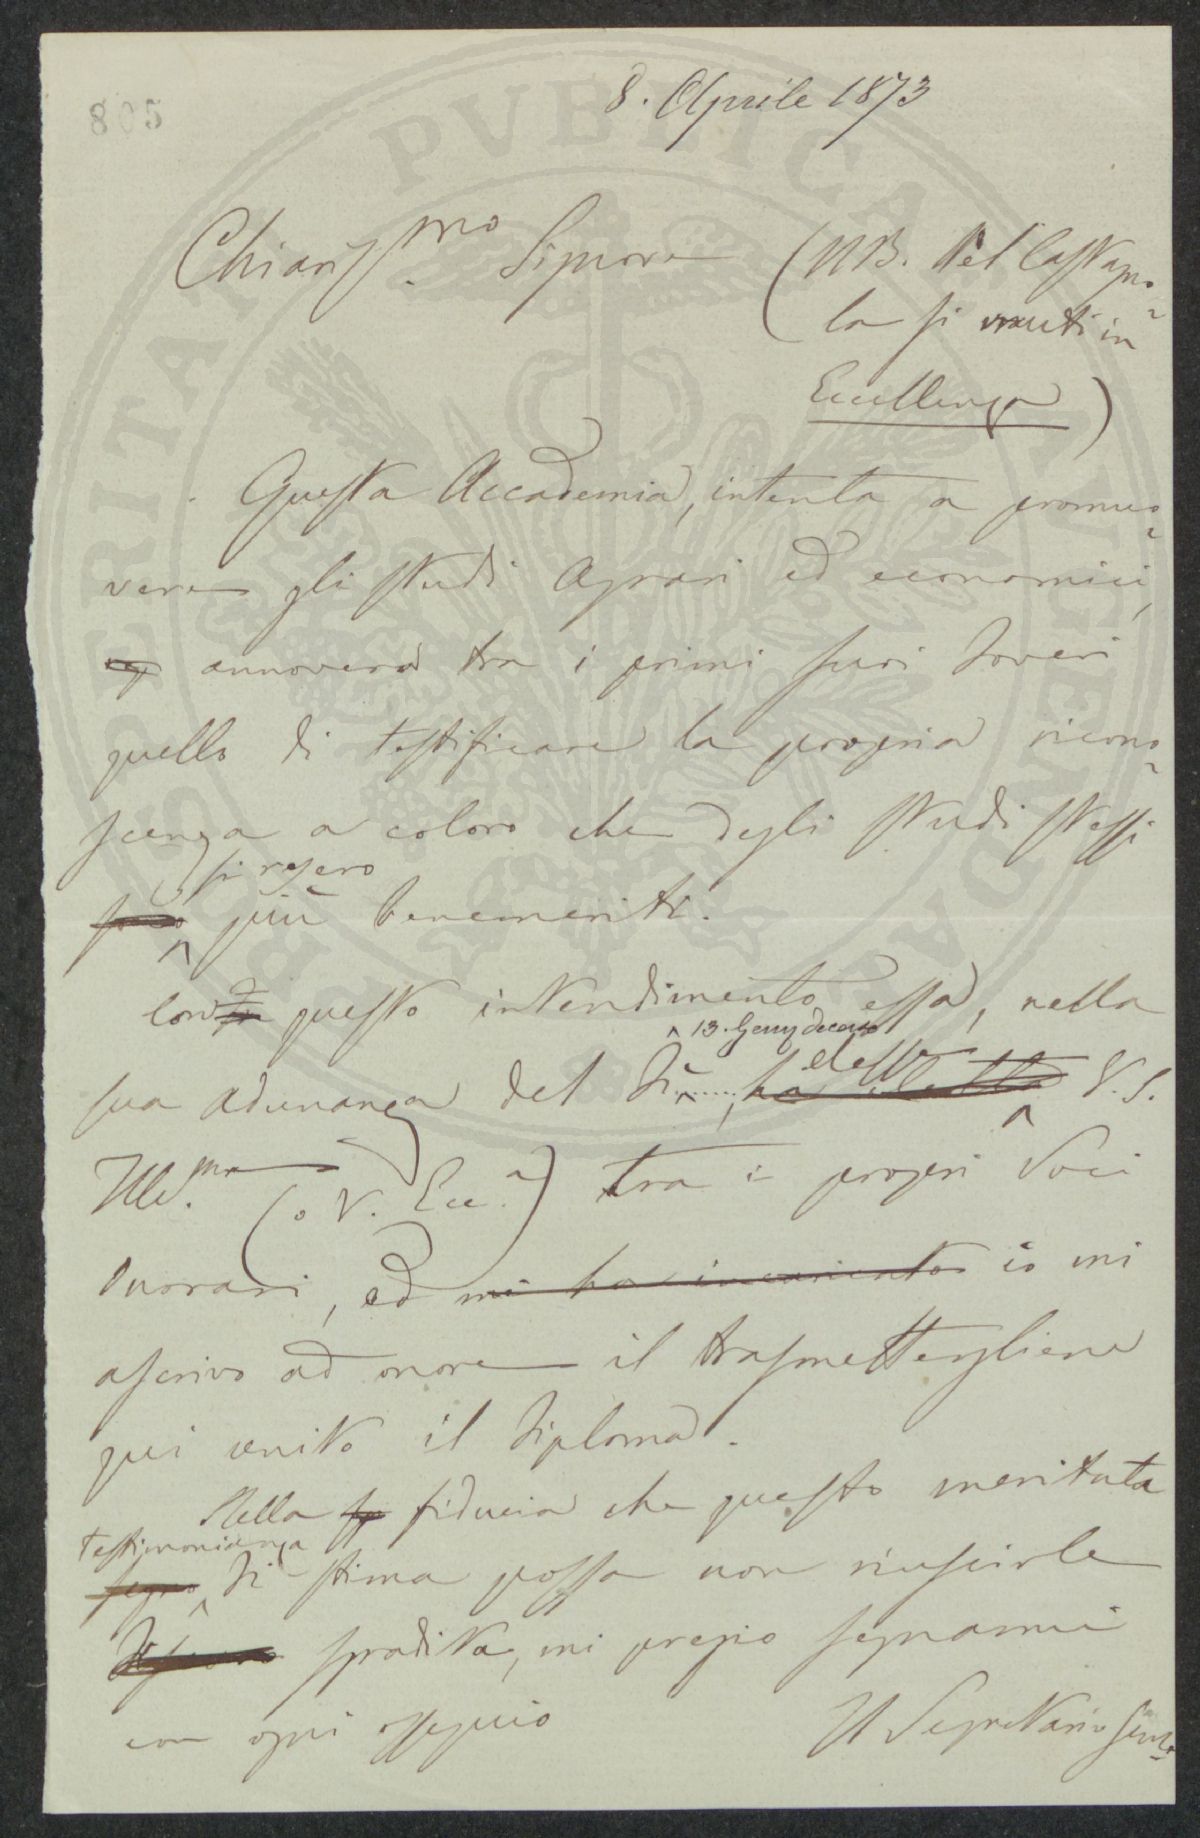 805
8. Aprile 1873
Chiariss.mo Signore (NB. Pel Castagno-
la si muti in
Eccellenza)
Questa Accademia, intenta a promuo-
vere gli studi Agrari ed economici,
annovera tra i primi suoi doveri
quello di testificare la propria ricono-
scenza a coloro che degli studi stessi
si resero
sono più benemeriti.
Con questo intendimento essa, nella
13. Genn decorso
sua adunanza del dì ......, elesse
ha eletta V. S.
Ill.ma (o V. Ecc.a) tra i propri Soci
Onorari, ed mi ha incaricato io mi
ascrivo ad onore il trasmettergliene
qui unito il Diploma.
Nella fiducia che questo meritata
testimonianza
segno di stima possa non riuscirle
sgradita, mi pregio segnarmi
con ogni ossequio Il Segretario Gen.le
PROSPERITATI PVBLICAE AVGENDAE